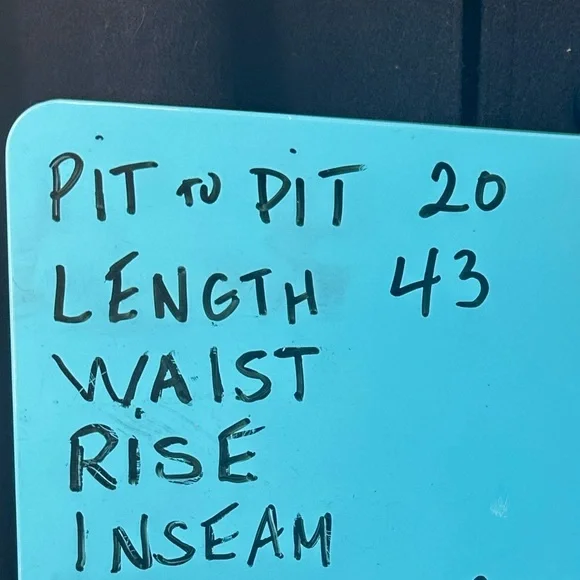 PIT TO PIT 20
LENGTH 43
WAIST
RISE
INSEAM